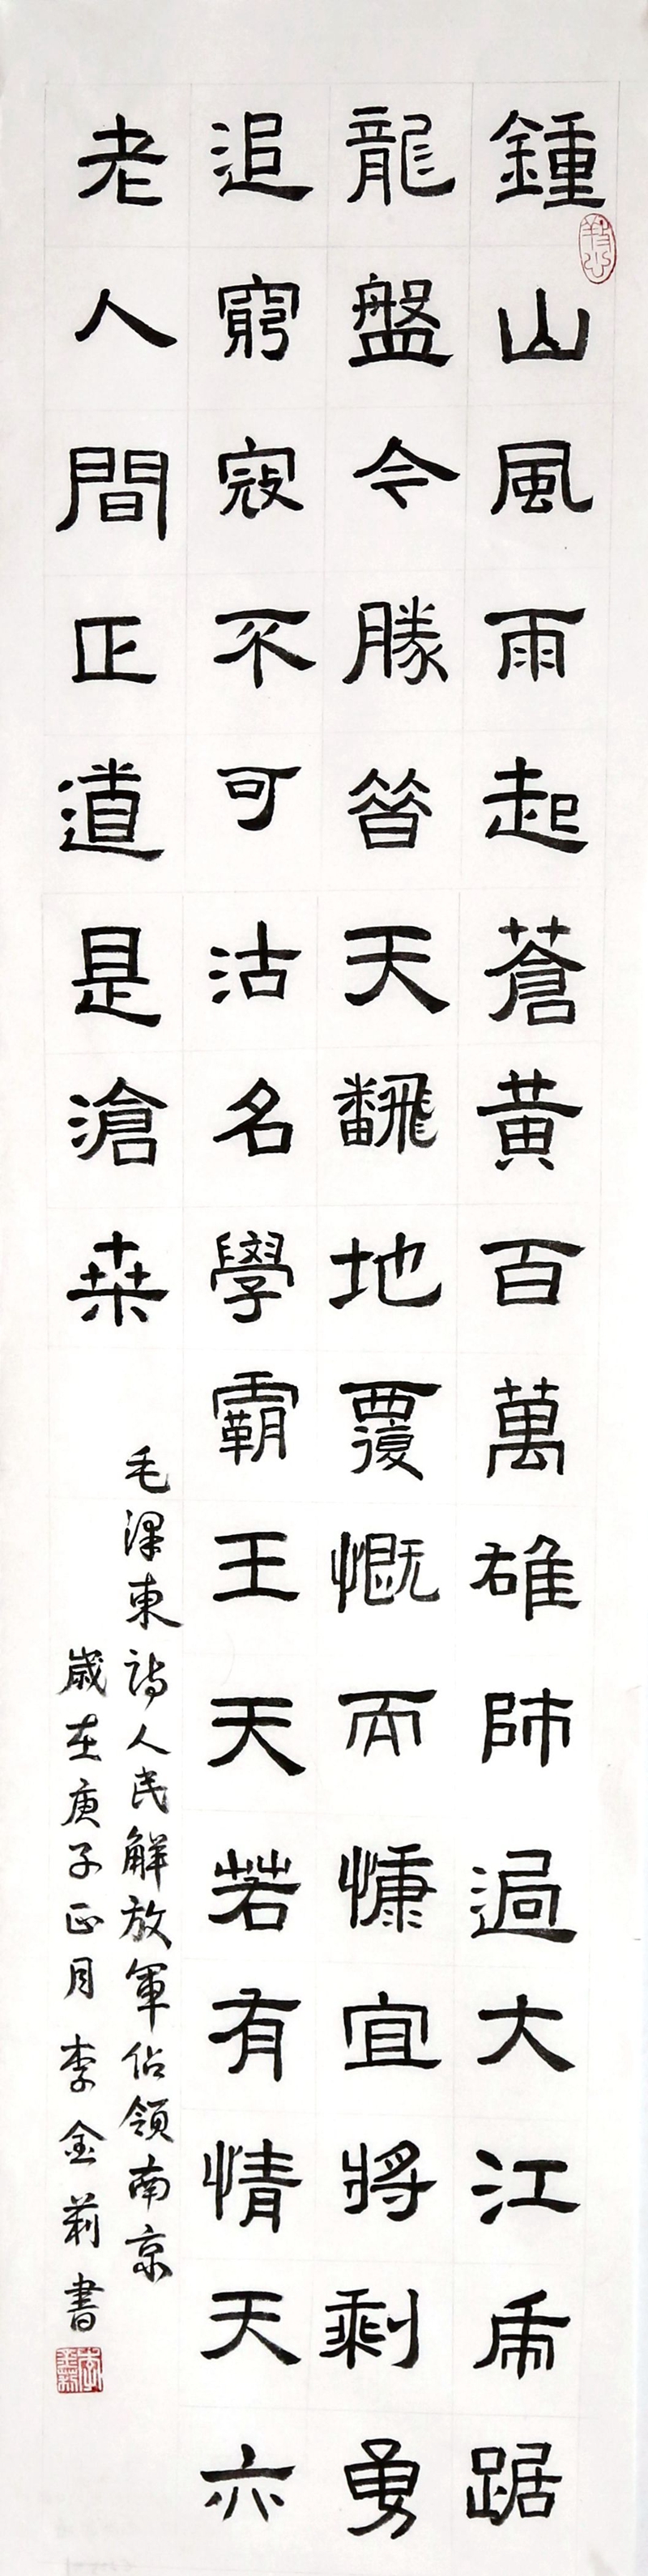 鍾山風雨起蒼黄百萬雄師過大江虎踞
龍盤今勝昔天飜地覆慨而慷宜將剩勇
追窮寇不可沽名學霸王天若有情天亦
老人間正道是滄桒
毛澤東詩人民解放軍佔領南京
歲在庚子正月李金莉書